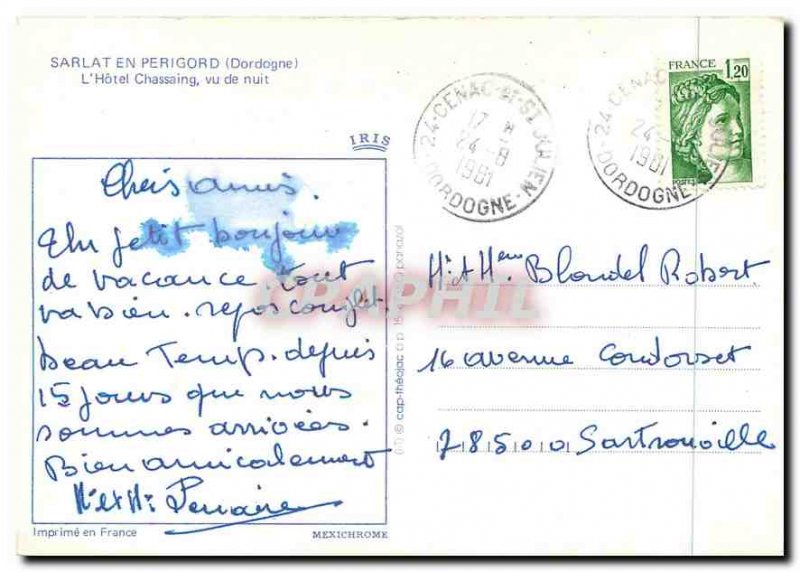 SARLAT EN PERIGORD (Dordogne)
L'Hôtel Chassaing, vu de nuit
IRIS
Chers amis.
Un petit bonjour
de vacance tout
va bien. repos complet.
beau Temp. depuis
15 jours que nous
sommes arrivées.
Bien amicalement
M. et Mme
Imprimé en France
MEXICHROME
cap-théojac
panazol
24-CENAC-et-ST JULIEN
17 H
24-8
1981
DORDOGNE
24-CENAC
JULIEN
24-
1981
DORDOGNE
FRANCE
1,20
POSTES
M. et Mme Blondel Robert
16 avenue Condorset
78500 Sartrouville
KRAPHIL